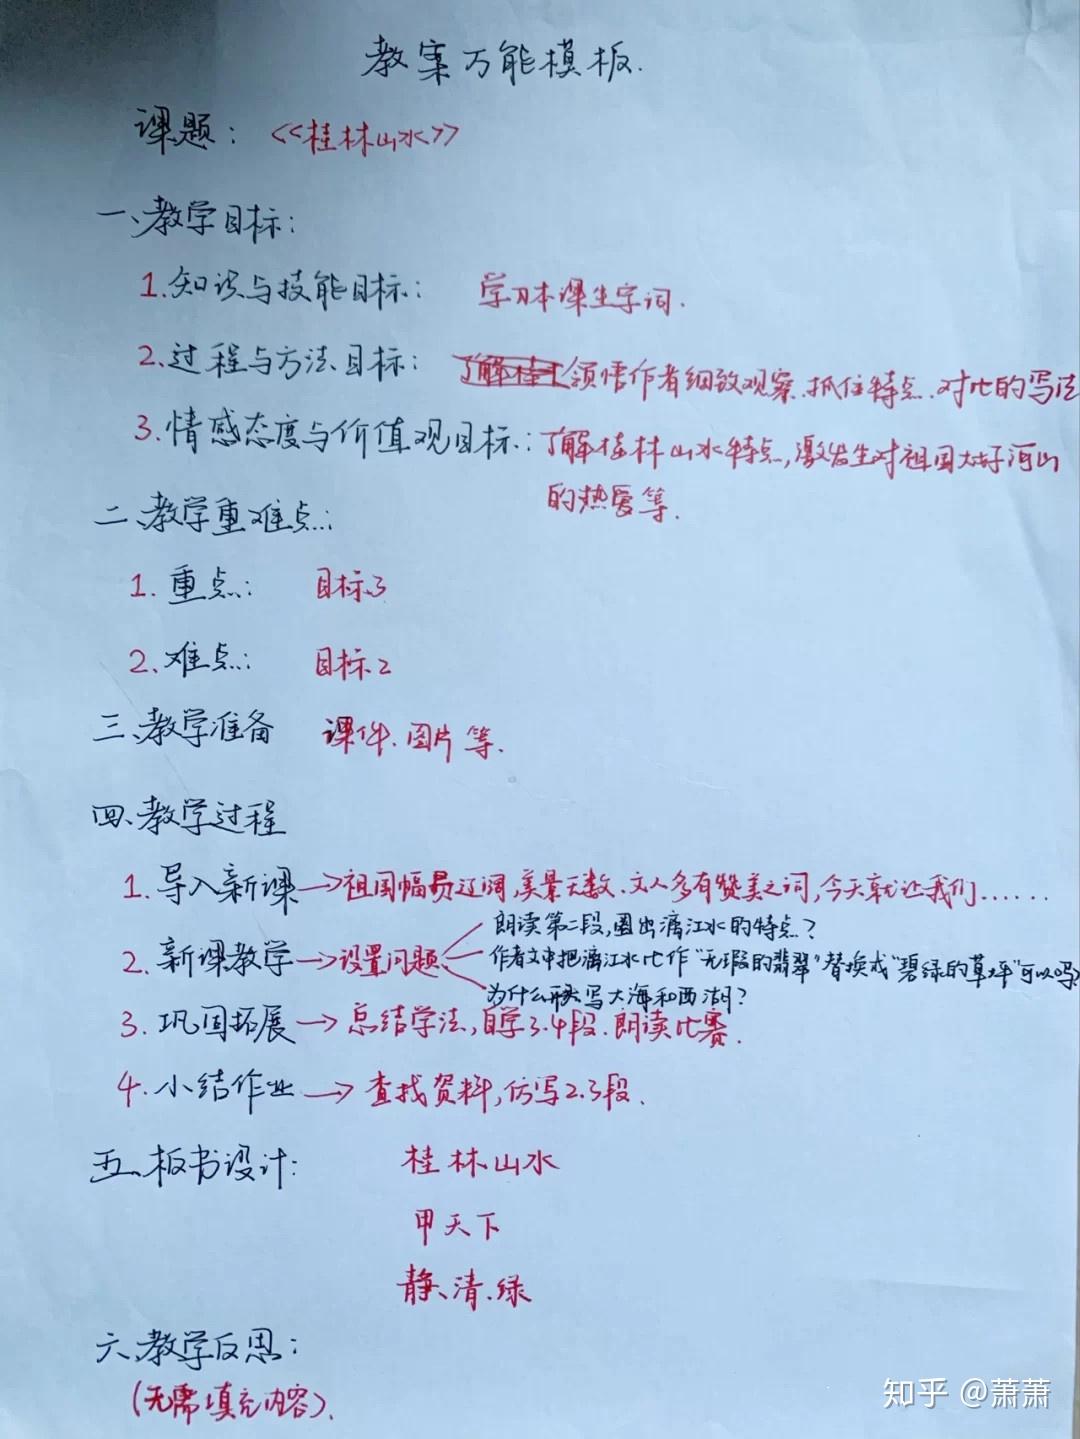 教案万能模板.
课题: <<桂林山水>>
一、教学目标:
1.知识与技能目标: 学习本课生字词.
2.过程与方法目标: 了解桂 领悟作者细致观察、抓住特点、对比的写法
3.情感态度与价值观目标: 了解桂林山水特点,激发生对祖国大好河山
的热爱等.
二、教学重难点:
1.重点: 目标3
2.难点: 目标2
三、教学准备 课件、图片等.
四、教学过程
1.导入新课→祖国幅员辽阔,美景无数、文人多有赞美之词,今天就让我们……
朗读第二段,圈出漓江水的特点?
2.新课教学→设置问题 作者文中把漓江水比作"无瑕的翡翠"替换成"碧绿的草坪"可以吗?
为什么 写大海和西湖?
3.巩固拓展→总结学法,自学3.4段、朗读比赛.
4.小结作业→查找资料,仿写2.3段.
五、板书设计: 桂林山水
甲天下
静、清、绿
六、教学反思:
(无需填充内容).
知乎 @萧萧